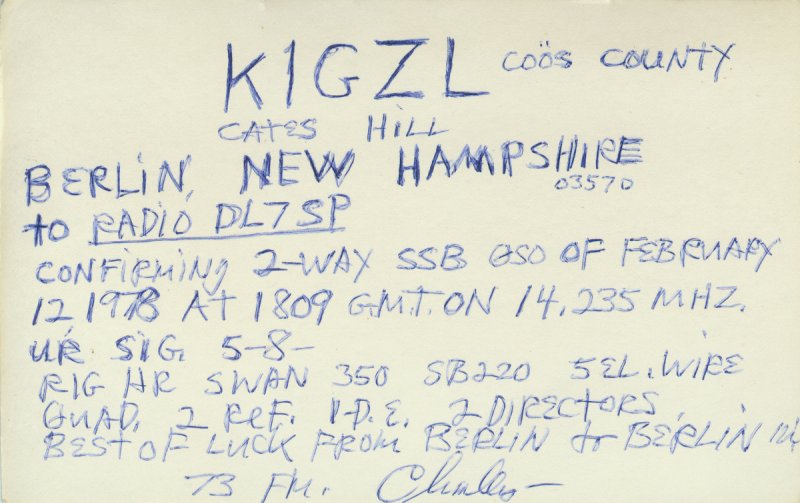 K1GZL COÖS COUNTY
CATES HILL
BERLIN, NEW HAMPSHIRE
03570
to RADIO DL7SP
CONFIRMING 2-WAY SSB QSO OF FEBRUARY
12 1978 At 1809 G.M.T. ON 14.235 MHZ.
UR SIG. 5-8-
RIG HR SWAN 350 SB220 5 EL. WIRE
QUAD. 2 REF. 1-D.E. 2 DIRECTORS.
BEST OF LUCK FROM BERLIN to BERLIN !!!
73 FM. Charles